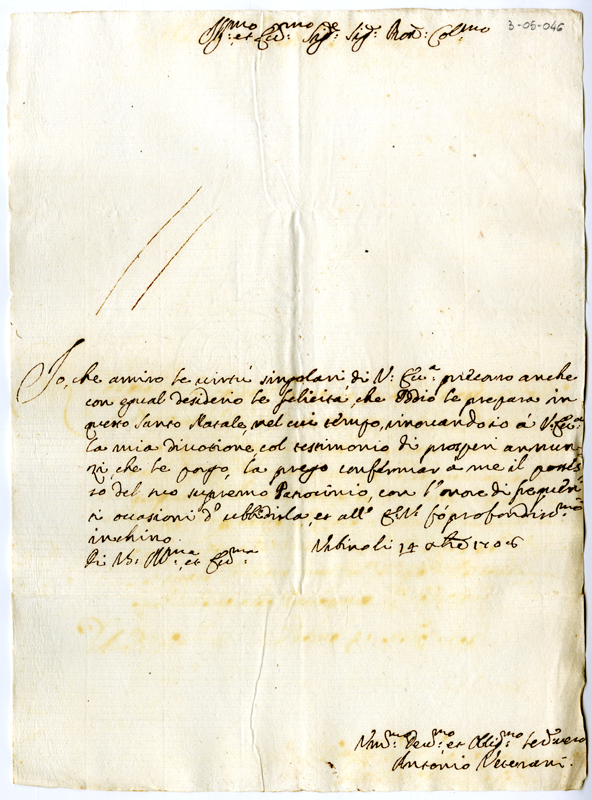 3-05-046
Ill:mo et Ecc:mo Sig:re Sig: Pron: Col:mo
Io, che amiro le virtù singolari di V: Ecc:a, precorro anche
con egual desiderio le felicità, che Iddio le prepara in
questo Santo Natale, nel cui tempo, rinovando io à V: Ecc:a
la mia divotione col testimonio di prosperi annun-
zi, che le porgo, la prego confirmar a me il posses-
so del suo supremo Patrocinio, con l'onore di frequen-
ti occasioni d'ubbidirla, et all' E.V. fò profondiss:mo
inchino.
14 1706
Di V: Ill:ma et Ecc:ma
Um:mo Dev:mo et Oblig:mo
Antonio Veterani.